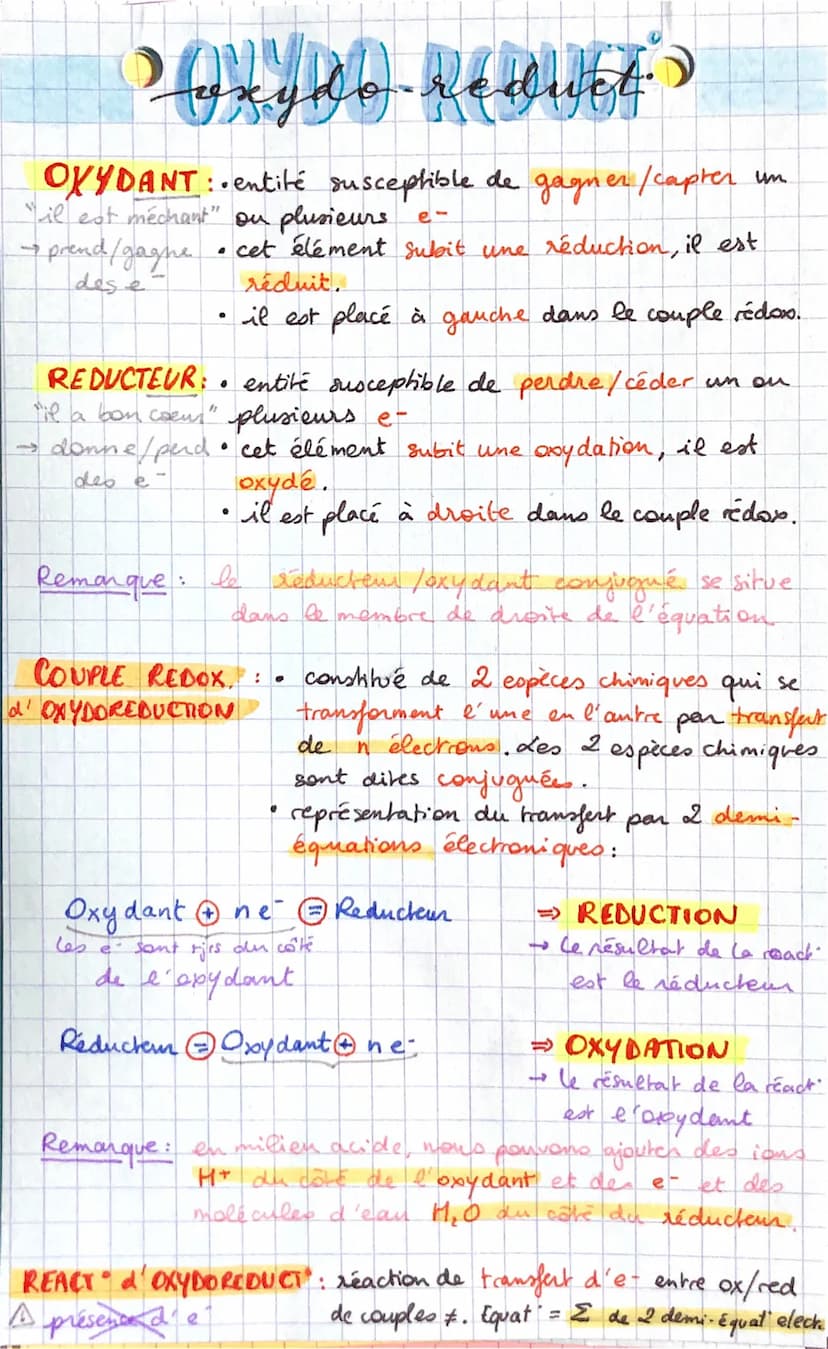 OXYDO-REDUCT°
oxydo-reduct°
OXYDANT : • entité susceptible de gagner/capter un
"il est méchant" ou plusieurs e-
→ prend/gagne • cet élément subit une réduction, il est
des e- réduit.
• il est placé à gauche dans le couple rédox.
REDUCTEUR : • entité susceptible de perdre/céder un ou
"il a bon coeur" plusieurs e-
→ donne/perd • cet élément subit une oxydation, il est
des e- oxydé.
• il est placé à droite dans le couple rédox.
Remarque : le réducteur/oxydant conjugué se situe
dans le membre de droite de l'équation
COUPLE REDOX, : • constitué de 2 espèces chimiques qui se
d'OXYDOREDUCTION transforment l'une en l'autre par transfert
de n électrons. Les 2 espèces chimiques
sont dites conjuguées.
• représentation du transfert par 2 demi-
équations électroniques :
Oxydant + ne- = Reducteur ⇒ REDUCTION
les e- sont tjrs du côté → le résultat de la réact°
de l'oxydant est le réducteur
Réducteur = Oxydant + ne- ⇒ OXYDATION
→ le résultat de la réact°
est l'oxydant
Remarque : en milieu acide, nous pouvons ajouter des ions
H+ du côté de l'oxydant et des e- et des
molécules d'eau H₂O du côté du réducteur.
REACT° d'OXYDOREDUCT° : réaction de transfert d'e- entre ox/red
⚠ présence d'e- de couples ≠. Equat° = Σ de 2 demi-équat° elech